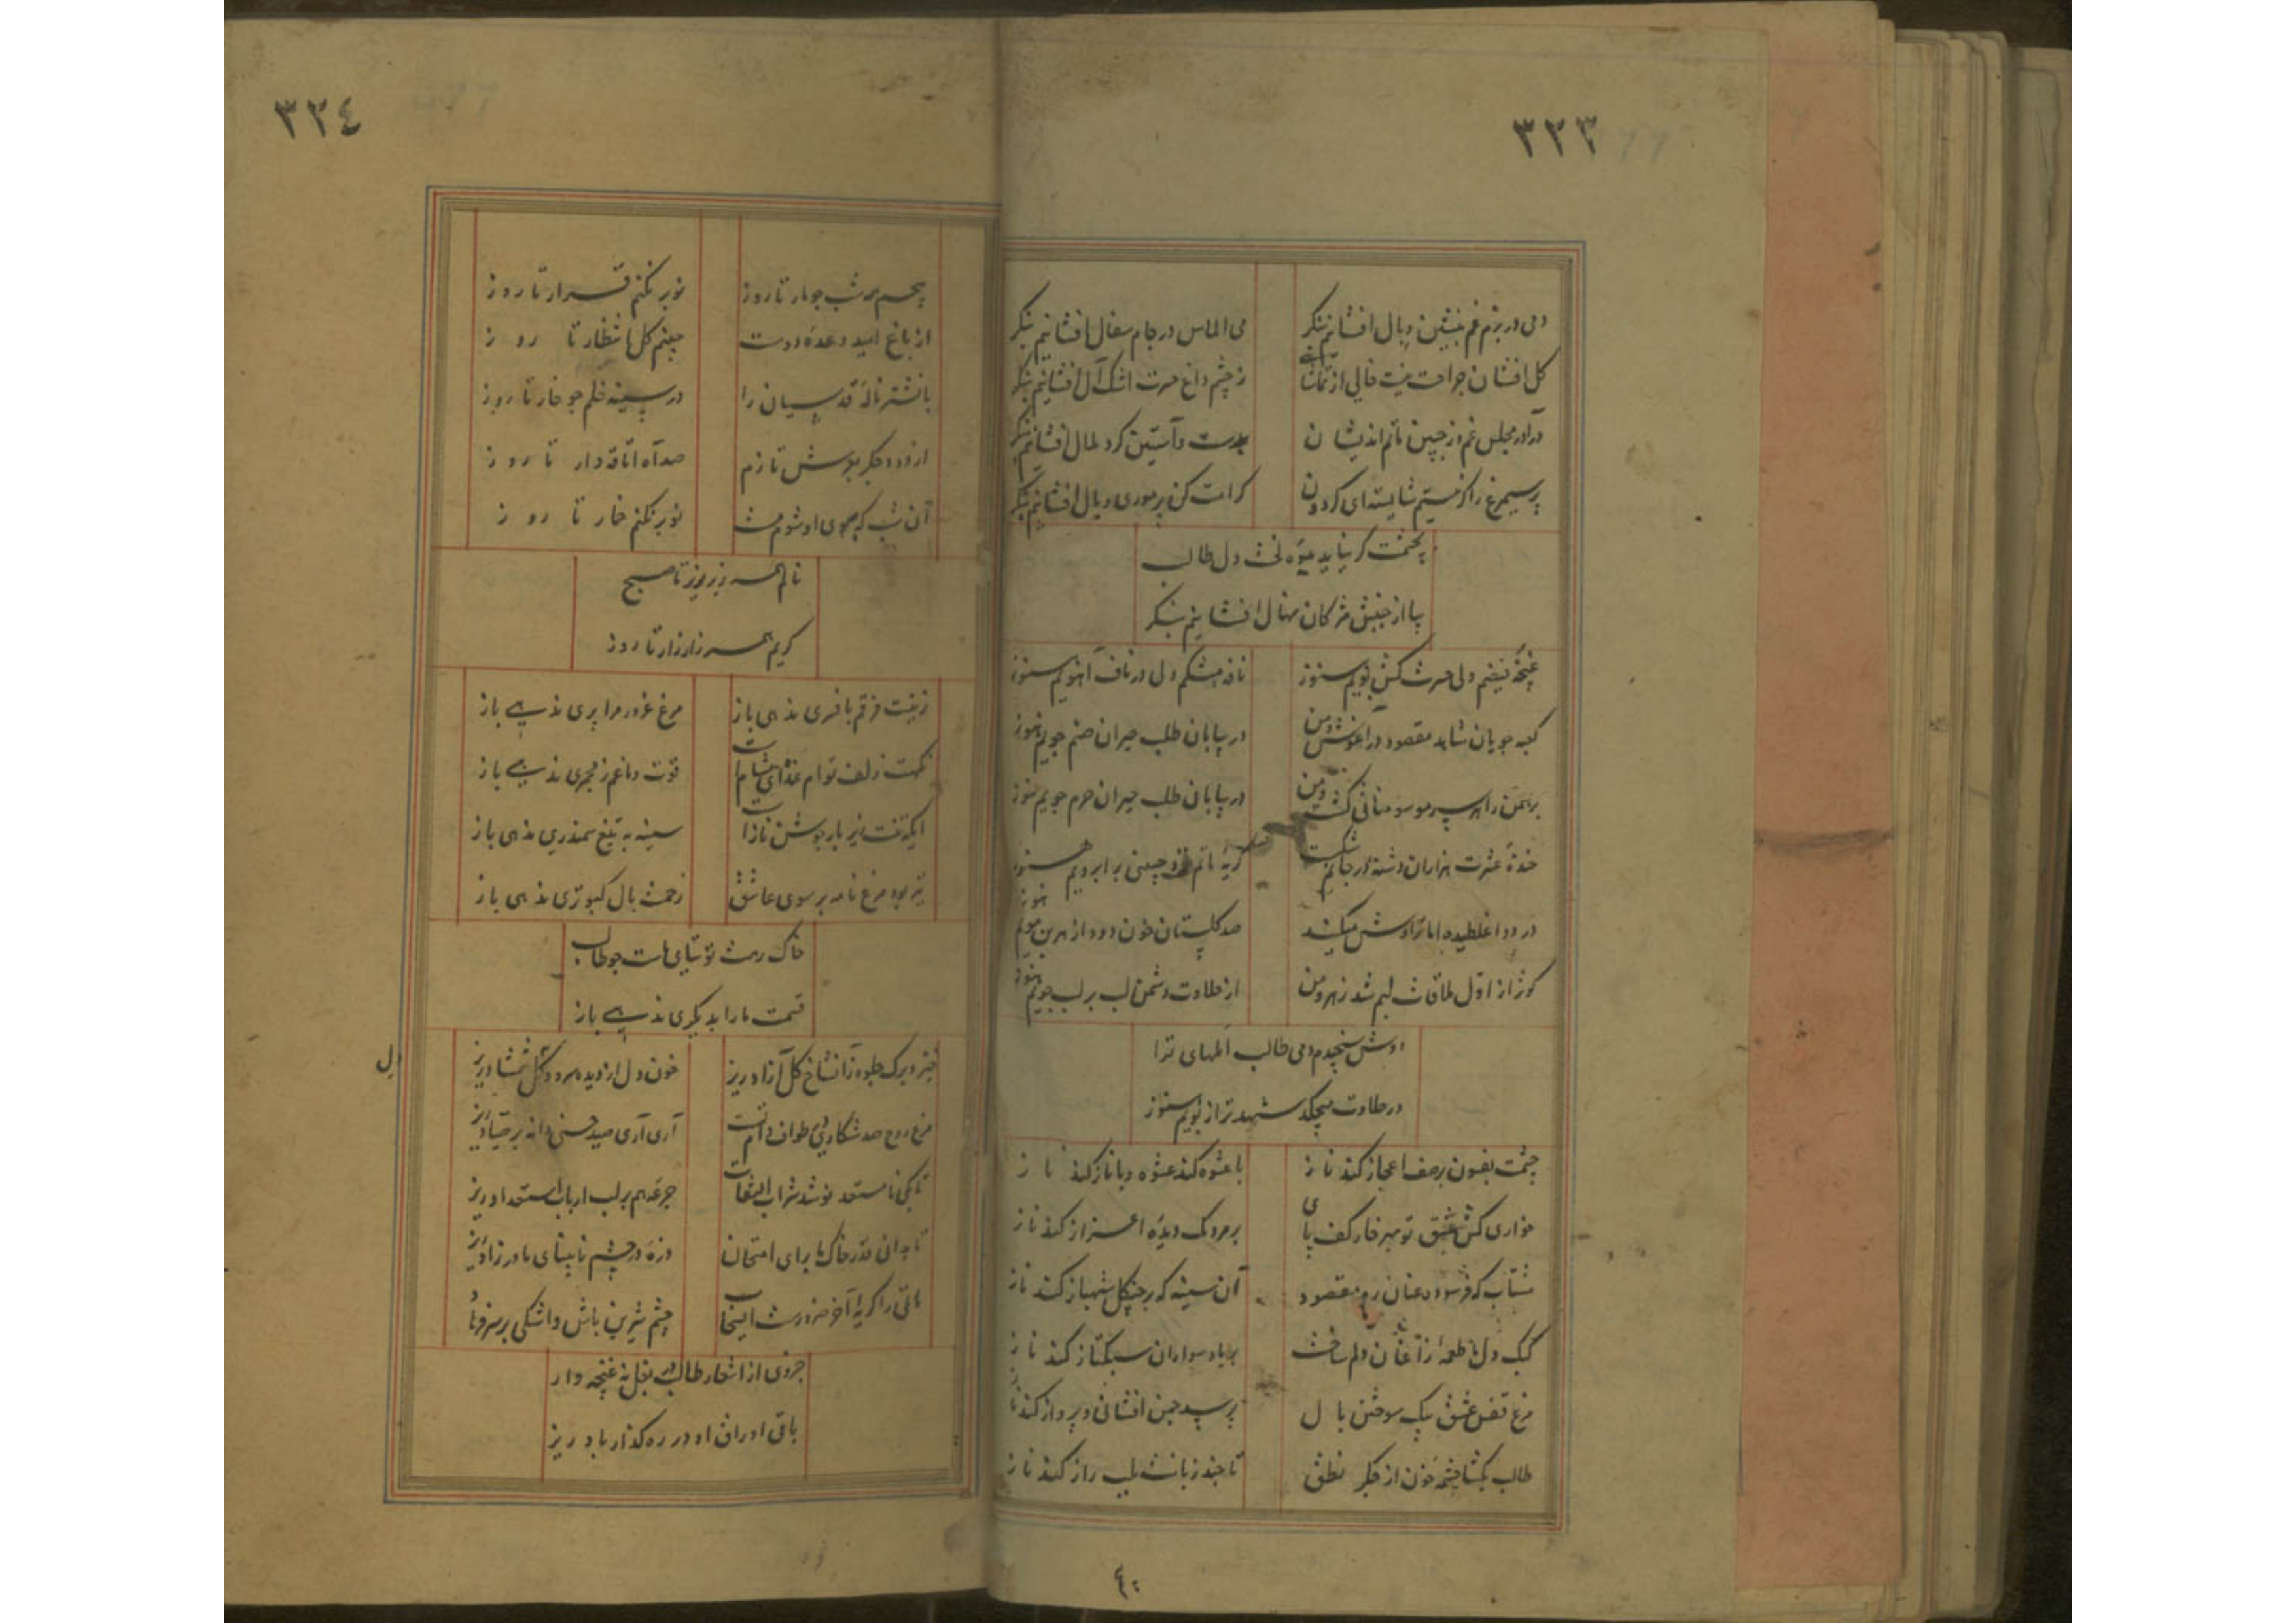 ٣٢٣
دمی در بزم غم بنشین و بال افشانیم بنگر
می الماس در جام سفال افشانیم بنگر
کل افشان جراحت نیست خالی از تماشائی
ز چشم داغ حسرت اشک آل افشانیم بنگر
درآ در مجلس غم وز جبین ماتم اندیشان
بدست و آستین کرد ملال افشانیم بنگر
پر سیمرغ را کر نیستم شایسته ای کردون
کرامت کن پر موری و بال افشانیم بنگر
بچشمت کر نیاید میوهٔ لخت دل طالب
بیا از جنبش مژکان نهال افشانیم بنگر
غنچهٔ فیضم ولی حسرت کش بویم هنوز
نافهٔ مشکم ولی در ناف آهویم هنوز
کعبه جویان شاهد مقصود در آغوش و من
در بیابان طلب حیران صنم جویم هنوز
برهمن را هر سر مو سومناتی کشت و من
در بیابان طلب حیران حرم جویم هنوز
خندهٔ عشرت هزاران دشنه در جانم شکست
کریهٔ ماتم نزد چینی بر ابرویم هنوز
در دوا غلطیده اما تراوش میکند
صد کلستان خون درد از هر بن مویم هنوز
کوثر از اول ملاقات لبم شد زهر و من
از حلاوت دشمن لب بر لب جویم هنوز
دوش سنجیدم دمی طالب المهای ترا
در حلاوت میچکد شهد تر از بویم هنوز
چشمت بفسون بر صف اعجاز کند ناز
با عشوه کند عشوه و با ناز کند ناز
خواری کش عشق تو بهر خار کف پای
بر مردمک دیدهٔ اعزاز کند ناز
شتاب که فرسوده عنان ره مقصود
آن سینه که بر چنکل شهباز کند ناز
کبک دل ما طعمهٔ زاغان دلم ساخت
بر باد سواران سبکتاز کند ناز
مرغ قفس عشق بیک سوختن بال
بر صد چمن افشانی و پرواز کند ناز
طالب بکشا چشمهٔ خون از جکر نطق
تا چند زبانت بلب راز کند ناز
٤٠
٣٢٤
پیچم همه شب چو مار تا روز
نوبر نکنم قرار تا روز
از باغ امید وعدهٔ دوست
چینم کل انتظار تا روز
با نشتر ناله قدسیان را
در سینه خلم چو خار تا روز
از دود جکر بدوش تازم
صد آه اتاقه دار تا روز
آن شب که ببوی او شوم مست
نوبر نکنم خمار تا روز
نالم همه زیر زیر تا صبح
کریم همه زار زار تا روز
زینت فرقم بافسری ندهی باز
مرغ غرور مرا پری ندهی باز
نکهت زلف توام غذای مشام است
قوت دماغم ز مجمری ندهی باز
ایکه تنت زیر بار جوشن ناز است
سینه به تیغ سمندری ندهی باز
تیر بود مرغ نامه بر سوی عاشق
زحمت بال کبوتری ندهی باز
خاک رهت توتیای ماست چو طالب
قسمت ما را بدیکری ندهی باز
خیز و برک جلوه زان شاخ کل آزاد ریز
خون دل از دیدهٔ سرو و کل شمشاد ریز
ل
مرغ روح صد شکاری در طواف دام تست
آری آری صید حسنی دانه بر صیاد ریز
تا بکی نامستعد نوشد شراب التفات
جرعهٔ هم بر لب ارباب استعداد ریز
تا بدانی قدر خاک ما برای امتحان
ذرهٔ در چشم نابینای مادرزاد ریز
ماتمی را کریهٔ آخر ضرورست اینجا
چشم شیرین باش و اشکی بر سر فرهاد
جزوی از اشعار طالب در بغل نه غنچه وار
باقی اوراق او در ره کذار باد ریز